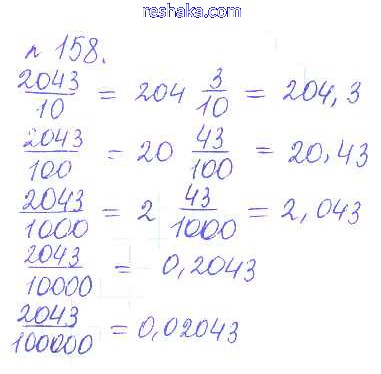 reshaka.com
n 158.
2043/10 = 204 3/10 = 204,3
2043/100 = 20 43/100 = 20,43
2043/1000 = 2 43/1000 = 2,043
2043/10000 = 0,2043
2043/100000 = 0,02043